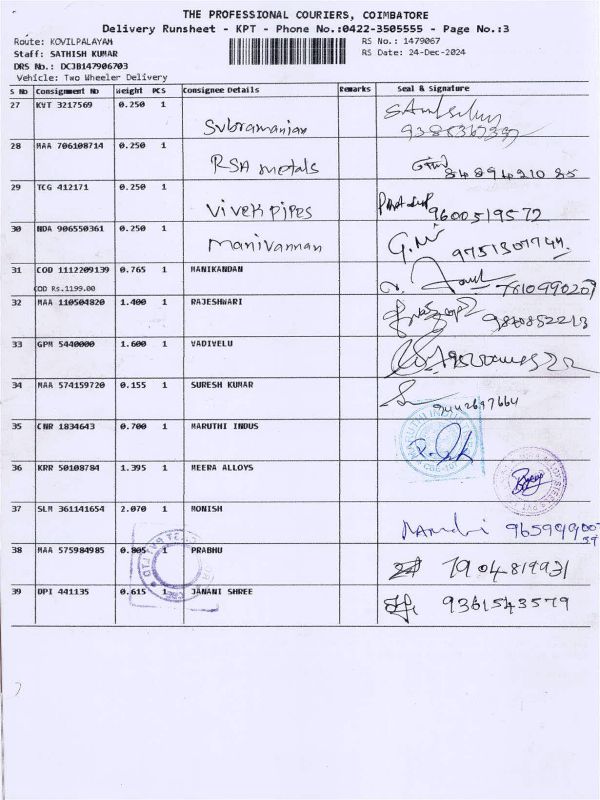 THE PROFESSIONAL COURIERS, COIMBATORE
Delivery Runsheet - KPT - Phone No.:0422-3505555 - Page No.:3
Route: KOVILPALAYAM
RS No.: 1479067
Staff: SATHISH KUMAR
RS Date: 24-Dec-2024
DRS No.: DCJB147906703
Vehicle: Two Wheeler Delivery
S No Consignment No Weight PCS Consignee Details Remarks Seal & Signature
27 KVT 3217569 0.250 1
Subramanian
28 MAA 706108714 0.250 1
RSA metals 84894210 85
29 TCG 412171 0.250 1
Vivek pipes 9600519572
30 NDA 906550361 0.250 1
Manivannan 9751307744
31 COD 1112209139 0.765 1 MANIKANDAN
COD Rs.1199.00 7810990209
32 MAA 110504820 1.400 1 RAJESHWARI
9840852213
33 GPM 5440000 1.600 1 VADIVELU
34 MAA 574159720 0.155 1 SURESH KUMAR
9442697664
35 CNR 1834643 0.700 1 MARUTHI INDUS
36 KRR 50108784 1.395 1 MEERA ALLOYS
37 SLM 361141654 2.070 1 MONISH
38 MAA 575984985 0.805 1 PRABHU
7904819931
39 DPI 441135 0.615 1 JANANI SHREE
9361543579